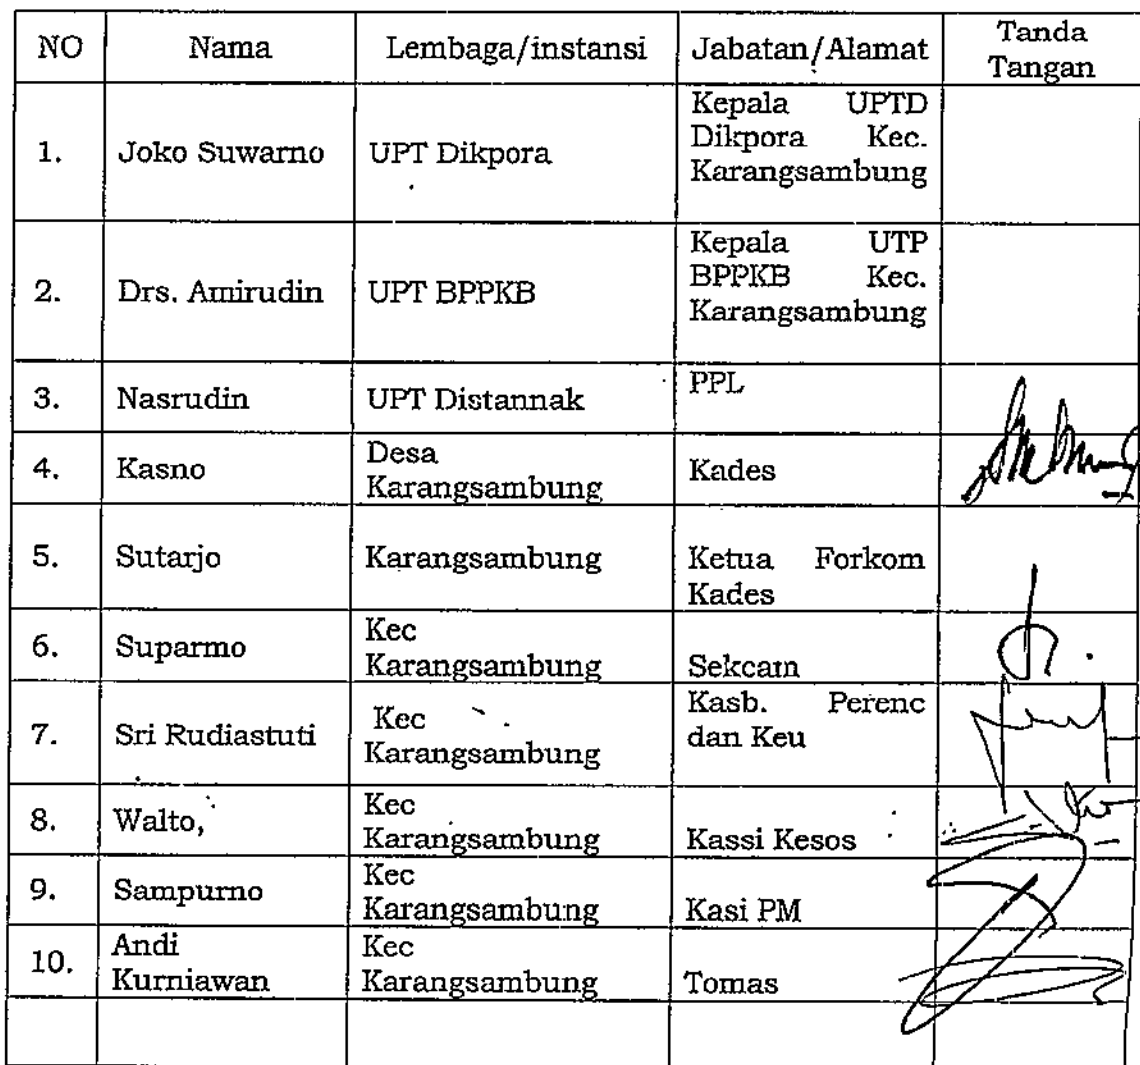 NO Nama Lembaga/instansi Jabatan/Alamat Tanda
Tangan
1. Joko Suwarno UPT Dikpora Kepala UPTD
Dikpora Kec.
Karangsambung
2. Drs. Amirudin UPT BPPKB Kepala UTP
BPPKB Kec.
Karangsambung
3. Nasrudin UPT Distannak PPL
4. Kasno Desa
Karangsambung Kades
5. Sutarjo Karangsambung Ketua Forkom
Kades
6. Suparmo Kec
Karangsambung Sekcam
7. Sri Rudiastuti Kec
Karangsambung Kasb. Perenc
dan Keu
8. Walto, Kec
Karangsambung Kassi Kesos
9. Sampurno Kec
Karangsambung Kasi PM
10. Andi
Kurniawan Kec
Karangsambung Tomas